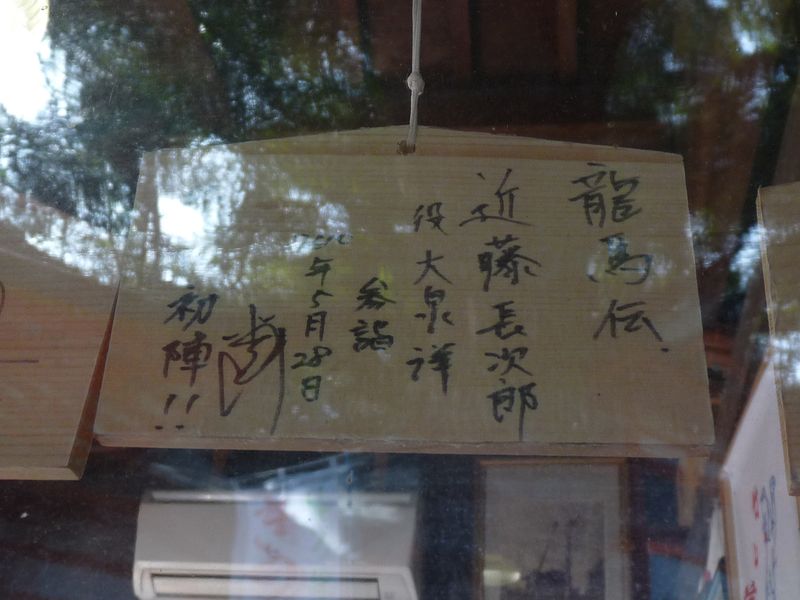 龍馬伝.
近藤長次郎
役大泉洋
参詣
年5月28日
初陣!!